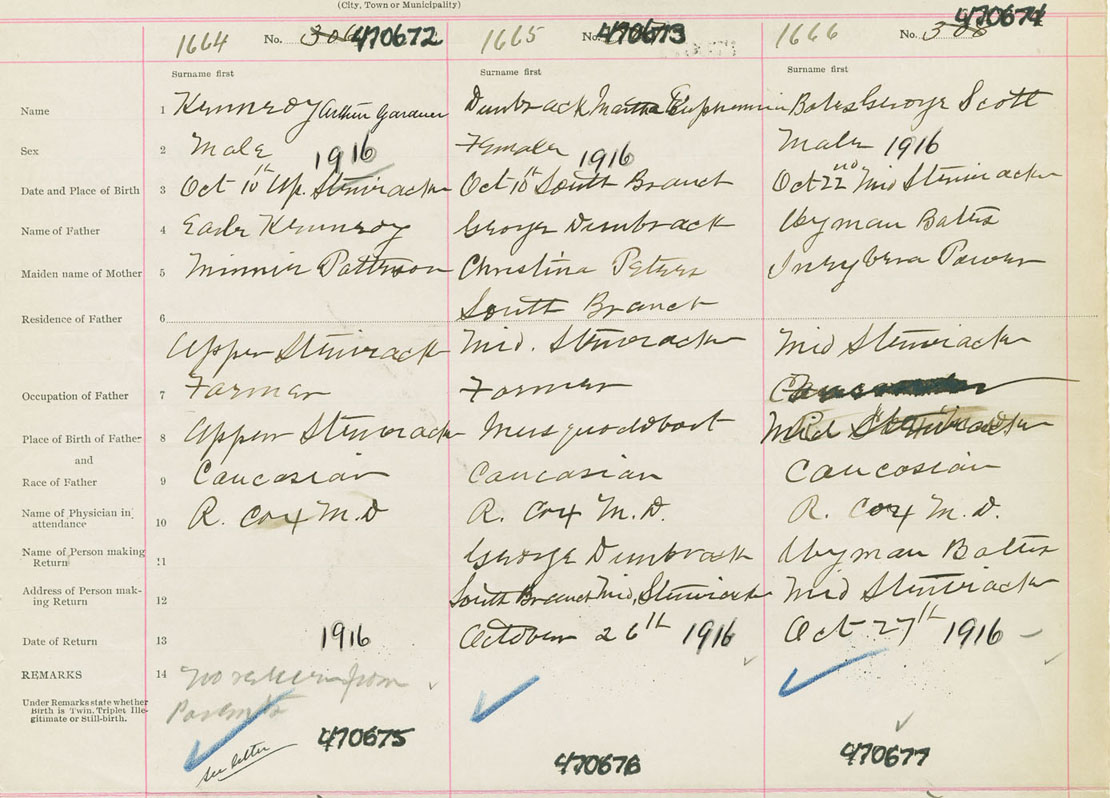 (City, Town or Municipality)
1664 No. 306 470672 1665 No. 470673 1666 No. 308 470674
Surname first Surname first Surname first
Name 1 Kennedy Arthur Gardner Dunbrack Martha Euphemnia Bates George Scott
Sex 2 Male 1916 Female 1916 Male 1916
Date and Place of Birth 3 Oct 10th Up. Stewiacke Oct 10th South Branch Oct 22nd Mid Stewiacke
Name of Father 4 Earle Kennedy George Dunbrack Wyman Bates
Maiden name of Mother 5 Minnie Patterson Christina Peters Power
South Branch
Residence of Father 6
Upper Stewiacke Mid. Stewiacke Mid Stewiacke
Occupation of Father 7 Farmer Farmer
Place of Birth of Father 8 Upper Stewiacke Musquodoboit Mid Stewiacke
and
Race of Father 9 Caucasian Caucasian Caucasian
Name of Physician in
attendance 10 R. Cox M.D R. Cox M.D. R. Cox M.D.
Name of Person making
Return 11 George Dunbrack Wyman Bates
Address of Person mak-
ing Return 12 South Branch Mid, Stewiacke Mid Stewiacke
Date of Return 13 1916 October 26th 1916 Oct 27th 1916
REMARKS 14 No return from
Parents
Under Remarks state whether
Birth is Twin, Triplet Ille-
gitimate or Still-birth.
see letter 470675 470676 470677